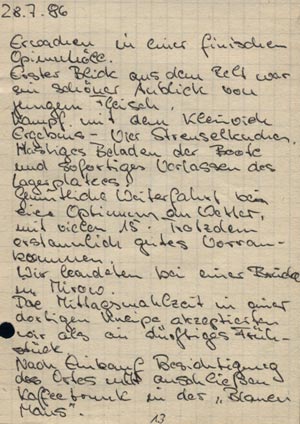 28.7.86
Erwachen in einer finnischen
Erster Blick aus dem Zelt war
ein schöner Anblick von
jungem Fleisch.
Kampf mit dem Kleinvieh
Ergebnis - Vier Streuselkuchen.
Hastiges Beladen der Boote
und sofortiges Verlassen des
Lagerplatzes!
Gemütliche Weiterfahrt bei
mit vielen 15. Trotzdem
erstaunlich gutes Voran-
kommen.
Wir landeten bei einer Brücke
in Mirow.
Die Mittagsmahlzeit in einer
dortigen Kneipe akzeptierten
wir als ein dürftiges Früh-
stück.
Nach Einkauf Besichtigung
des Ortes mit anschließen
Kaffeetrunk in der "Blauen
Maus".
13